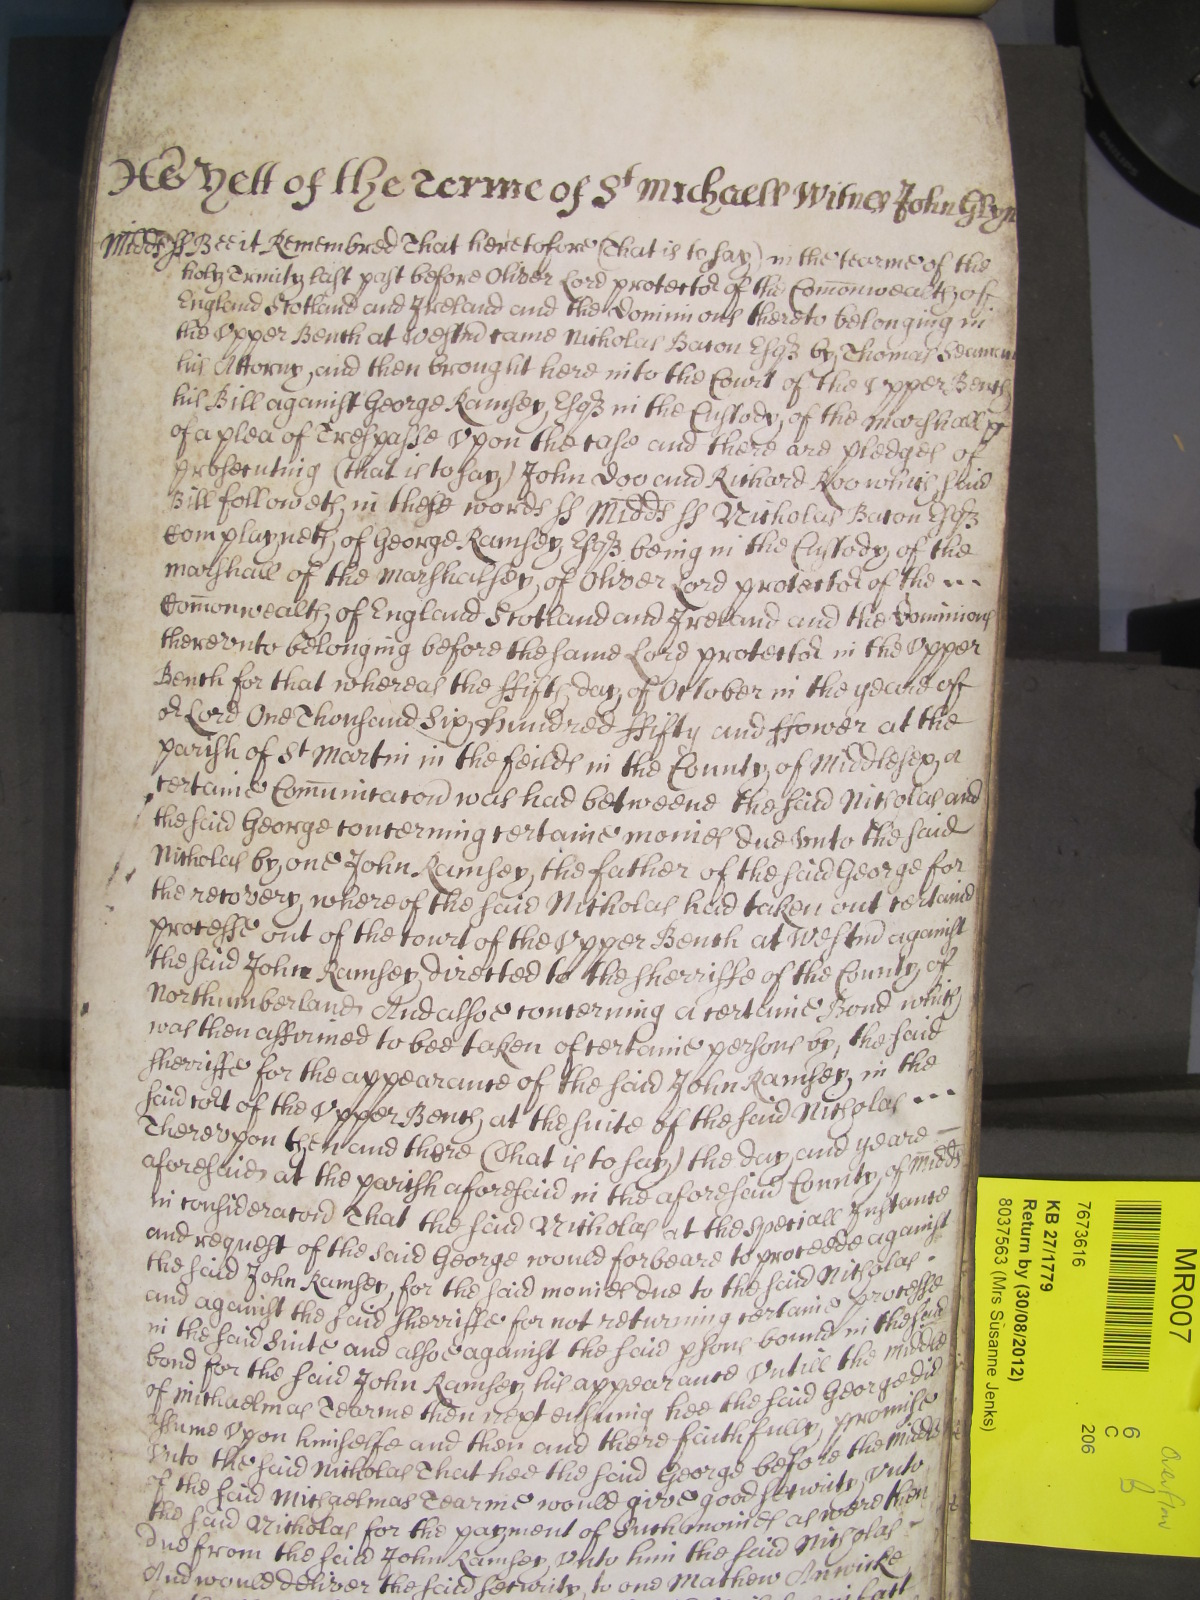 As Yett of the Terme of St Michaell Witnes John Glyn
Midds ss Bee it Remembred That heretofore (That is to say) in the tearme of the
holy Trinity last past before Oliver Lord protector of the Comonwealth of
England Scotland and Ireland and the Dominions thereto belonging in
the Upper Bench at Westmr came Nicholas Bacon Esqr by Thomas Seaman
his Attorny, and then brought here into the Court of the Upper Bench
his Bill against George Ramsey, Esqr in the Custody, of the Marshall
of a plea of Trespasse Upon the case and there are pledges of
prosecuting (that is to say) John Doo and Richard Roo which said
Bill followeth, in these words ss Midds ss Nicholas Bacon Esqr
Complayneth, of George Ramsey, Esqr being in the Custody, of the
marshall of the Marshalsey, of Oliver Lord protector of the ---
Comonwealth, of England Scotland and Ireland and the Dominions
therevnto belonging before the same Lord protector in the Upper
Bench for that whereas the ffifth day, of October in the yeare of
or Lord One Thousand Six Hundred ffifty and ffower at the
parish of St Martin in the feilds in the County, of Middlesex, a
certaine Comunicacon was had betweene the said Nicholas and
the said George concerning certaine monies due Vnto the said
Nicholas by, one John Ramsey, the father of the said George for
the recovery, whereof the said Nicholas had taken out certaine
processe out of the court of the Upper Bench at Westmr against
the said John Ramsey, directed to the Sherriffe of the County, of
Northumberland, And alsoe concerning a certaine Bond which
was then affirmed to bee taken of certaine persons by, the said
Sherriffe for the appearance of the said John Ramsey, in the
said cort of the Upper Bench, at the suite of the said Nicholas ---
Therevpon then and there (That is to say) the day, and yeare –
aforesaid, at the parish aforesaid in the aforesaid County, of Midds
in consideracon That the said Nicholas at the speciall Instance
and request of the said George would forbeare to proceede against
the said John Ramsey, for the said monies due to the said Nicholas -
and against the said Sherriffe for not returning certaine processe
in the said Suite and alsoe against the said psons bound in the said
bond for the said John Ramsey his appearance Vntill the middle
of Michaelmas Tearme then next ensuing hee the said George did
Assume Vpon himselfe and then and there faithfully, promise
Vnto the said Nicholas That hee the said George before the Middle
of the said Michaelmas Tearme would give good security, Vnto
the said Nicholas for the payment of Such monies as were then
due from the said John Ramsey, Vnto him the said Nicholas -
And would deliver the said Security, to one Mathew Anwicke
MR007
6
C
206
7673616
KB 27/1779
Return by (30/08/2012)
8037563 (Mrs Susanne Jenks)